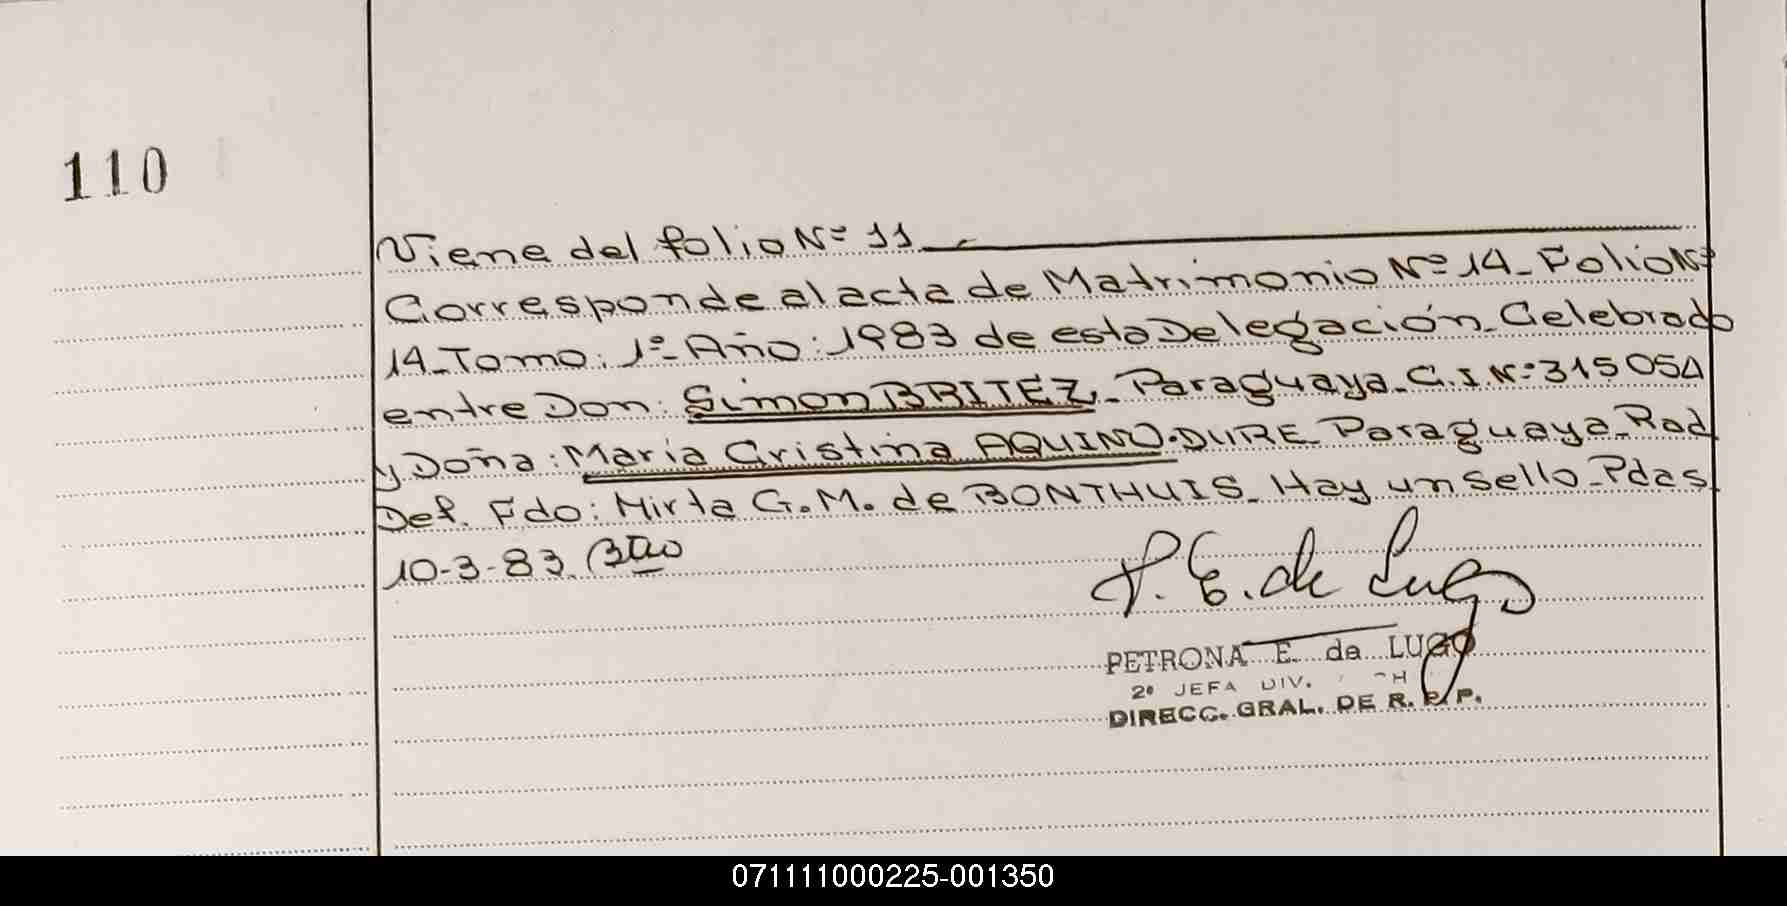 110
Viene del folio Nº 11
Corresponde al acta de Matrimonio Nº 14_ Folio Nº
14_Tomo: 1º_ Año: 1983 de esta Delegación_ Celebrado
entre Don: Simon BRITEZ_ Paraguaya_ C.I.Nº 315054
y Doña: Maria Cristina AQUINO.DURE_ Paraguaya_Rad
Def. Fdo: Mirta G.M. de BONTHUIS_ Hay un sello_Pdas
10-3-83.
P. E. de Lugo
PETRONA E. de LUGO
2º JEFA DIV.
DIRECC. GRAL. DE R. E. P.
071111000225-001350